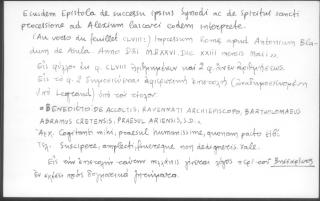 Eiusdem Epistola de successu ipsius Synodi ac de Spiritus sancti
processione ad Alexium Lascarei eodem interprete.
(Au verso du feuillet CLVIII:) Impressum Rome apud Antonium Bla-
dum de Asula Anno Dñi M.D.XXVI. Die XXIII mensis Maii.
Εἰς φύλλον ἐν φ. CLVIII ἠριθμημένων καὶ 2 φ. ἄνευ ἀριθμήσεως.
Εἰς τὸ φ. 2 δημοσιεύεται ἀφιερωτικὴ ἐπιστολὴ (ἀναδημοσιευμένη
ὑπὸ Legrand) ὑπὸ τὸν τίτλον
«BENEDICTO DE ACCOLTIS, RAVENNATI ARCHIEPISCOPO, BARTHOLOMAEUS
ABRAMUS CRETENSIS, PRAESUL ARIENSIS, S.D.»
Ἀρχ. Cogitanti mihi, praesul humanissime, quonam pacto tibi
Τελ. Suscipere, amplecti, fovereque non dedigneris. Vale.
Εἰς τὴν ἐπιστολὴν ταύτην γίνεται λόγος περὶ τοῦ Βησσαρίωνος
ἐν σχέσει πρὸς δογματικὰ ζητήματα.